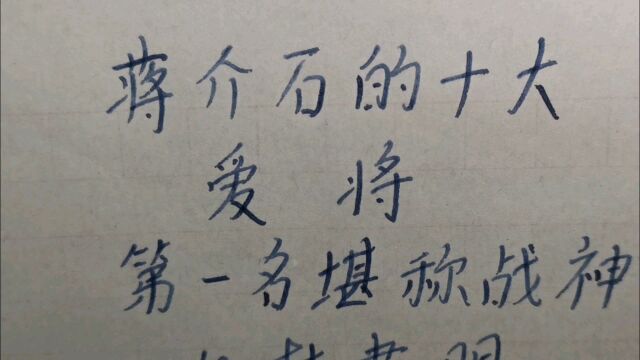 蒋介石的十大
爱将
第一名堪称战神